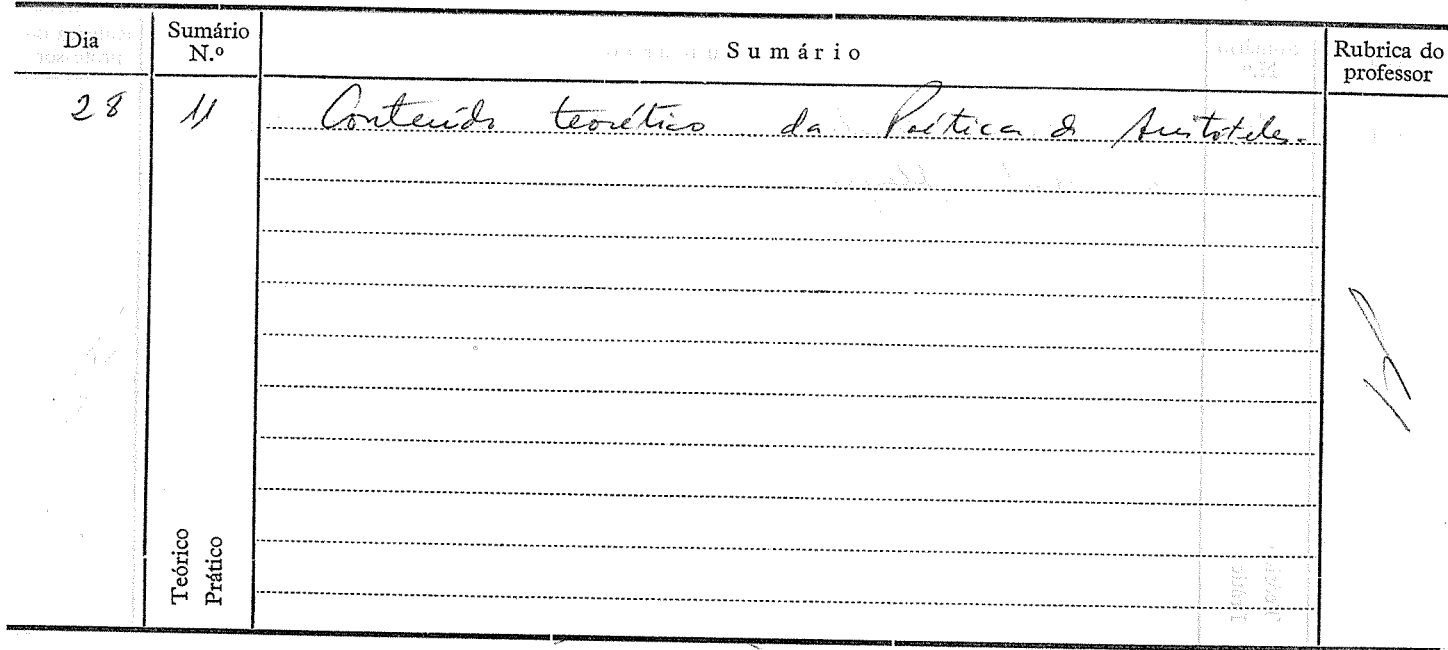 Dia Sumário N.º Sumário Rubrica do professor
28 11 Conteúdo teorético da Poética de Aristóteles.
Teórico
Prático